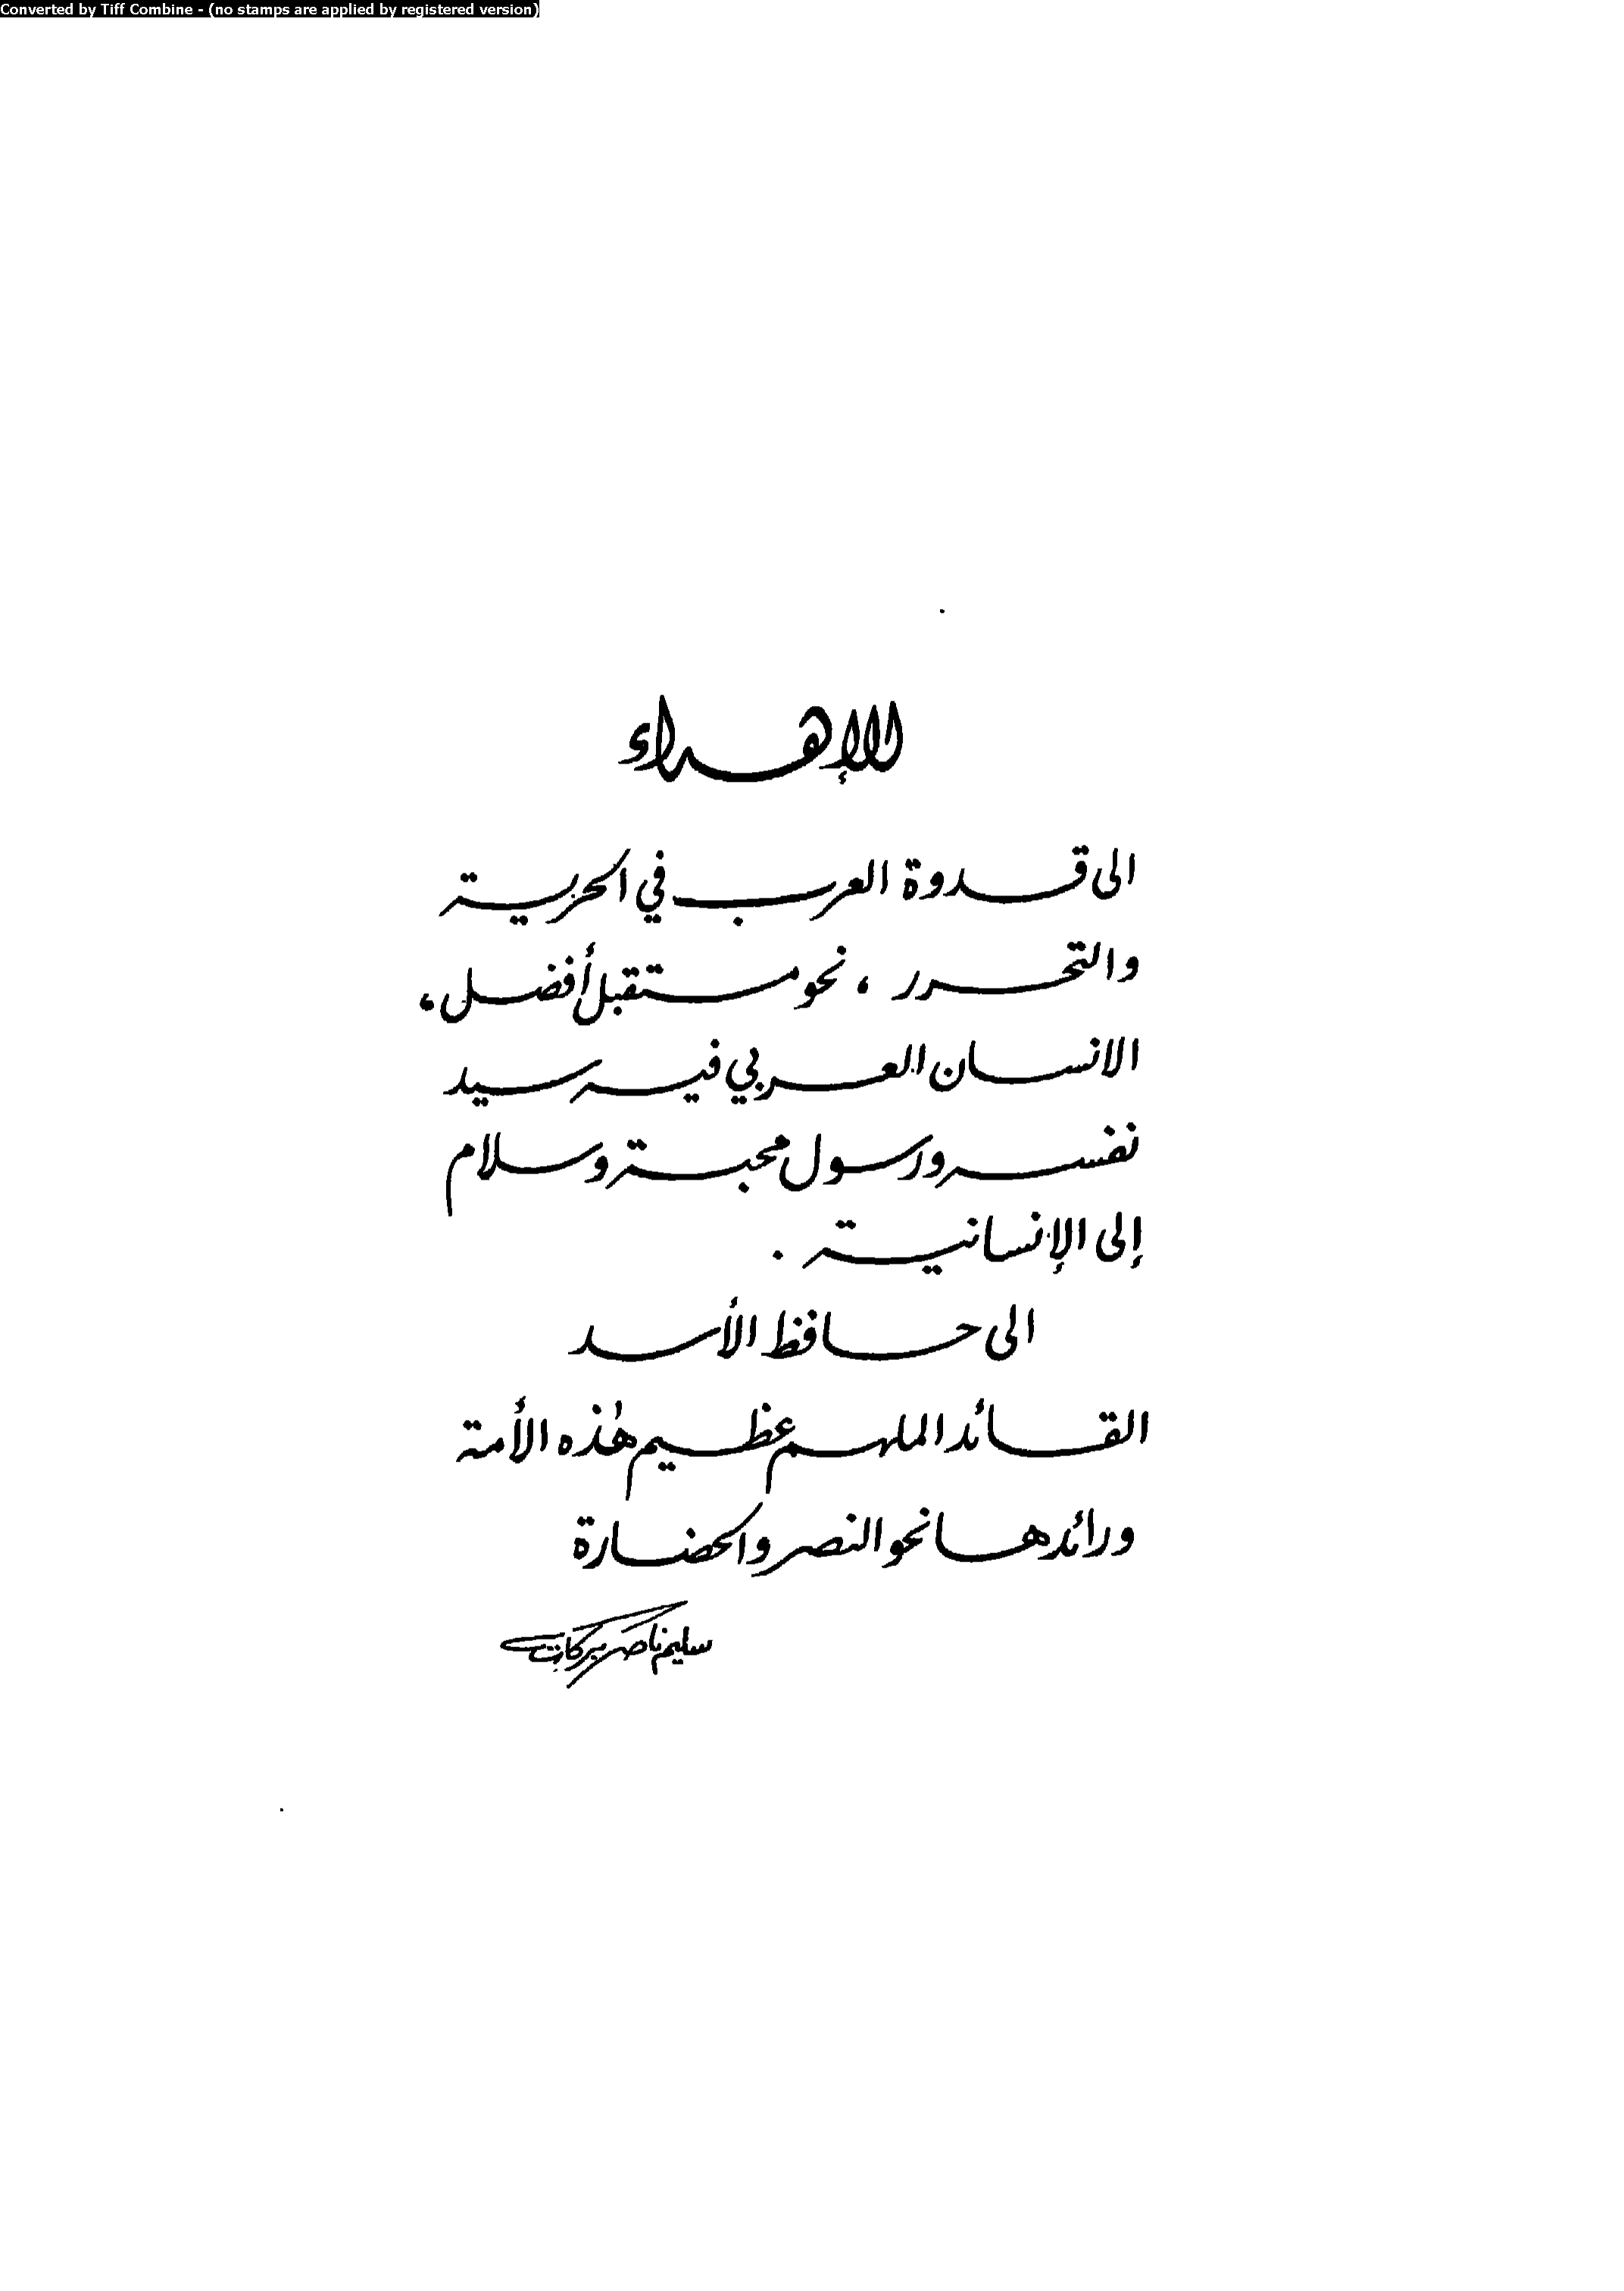 Converted by Tiff Combine - (no stamps are applied by registered version)
الإهداء
الى قدوة العرب في الحرية
والتحرر ، نحو مستقبل أفضل ،
الانسان العربي فيه سيد
نفسه ورسول محبة وسلام
إلى الإنسانية .
الى حافظ الأسد
القائد الملهم عظيم هٰذه الأمة
ورائدها نحو النصر والحضارة
سليم ناصر بركات